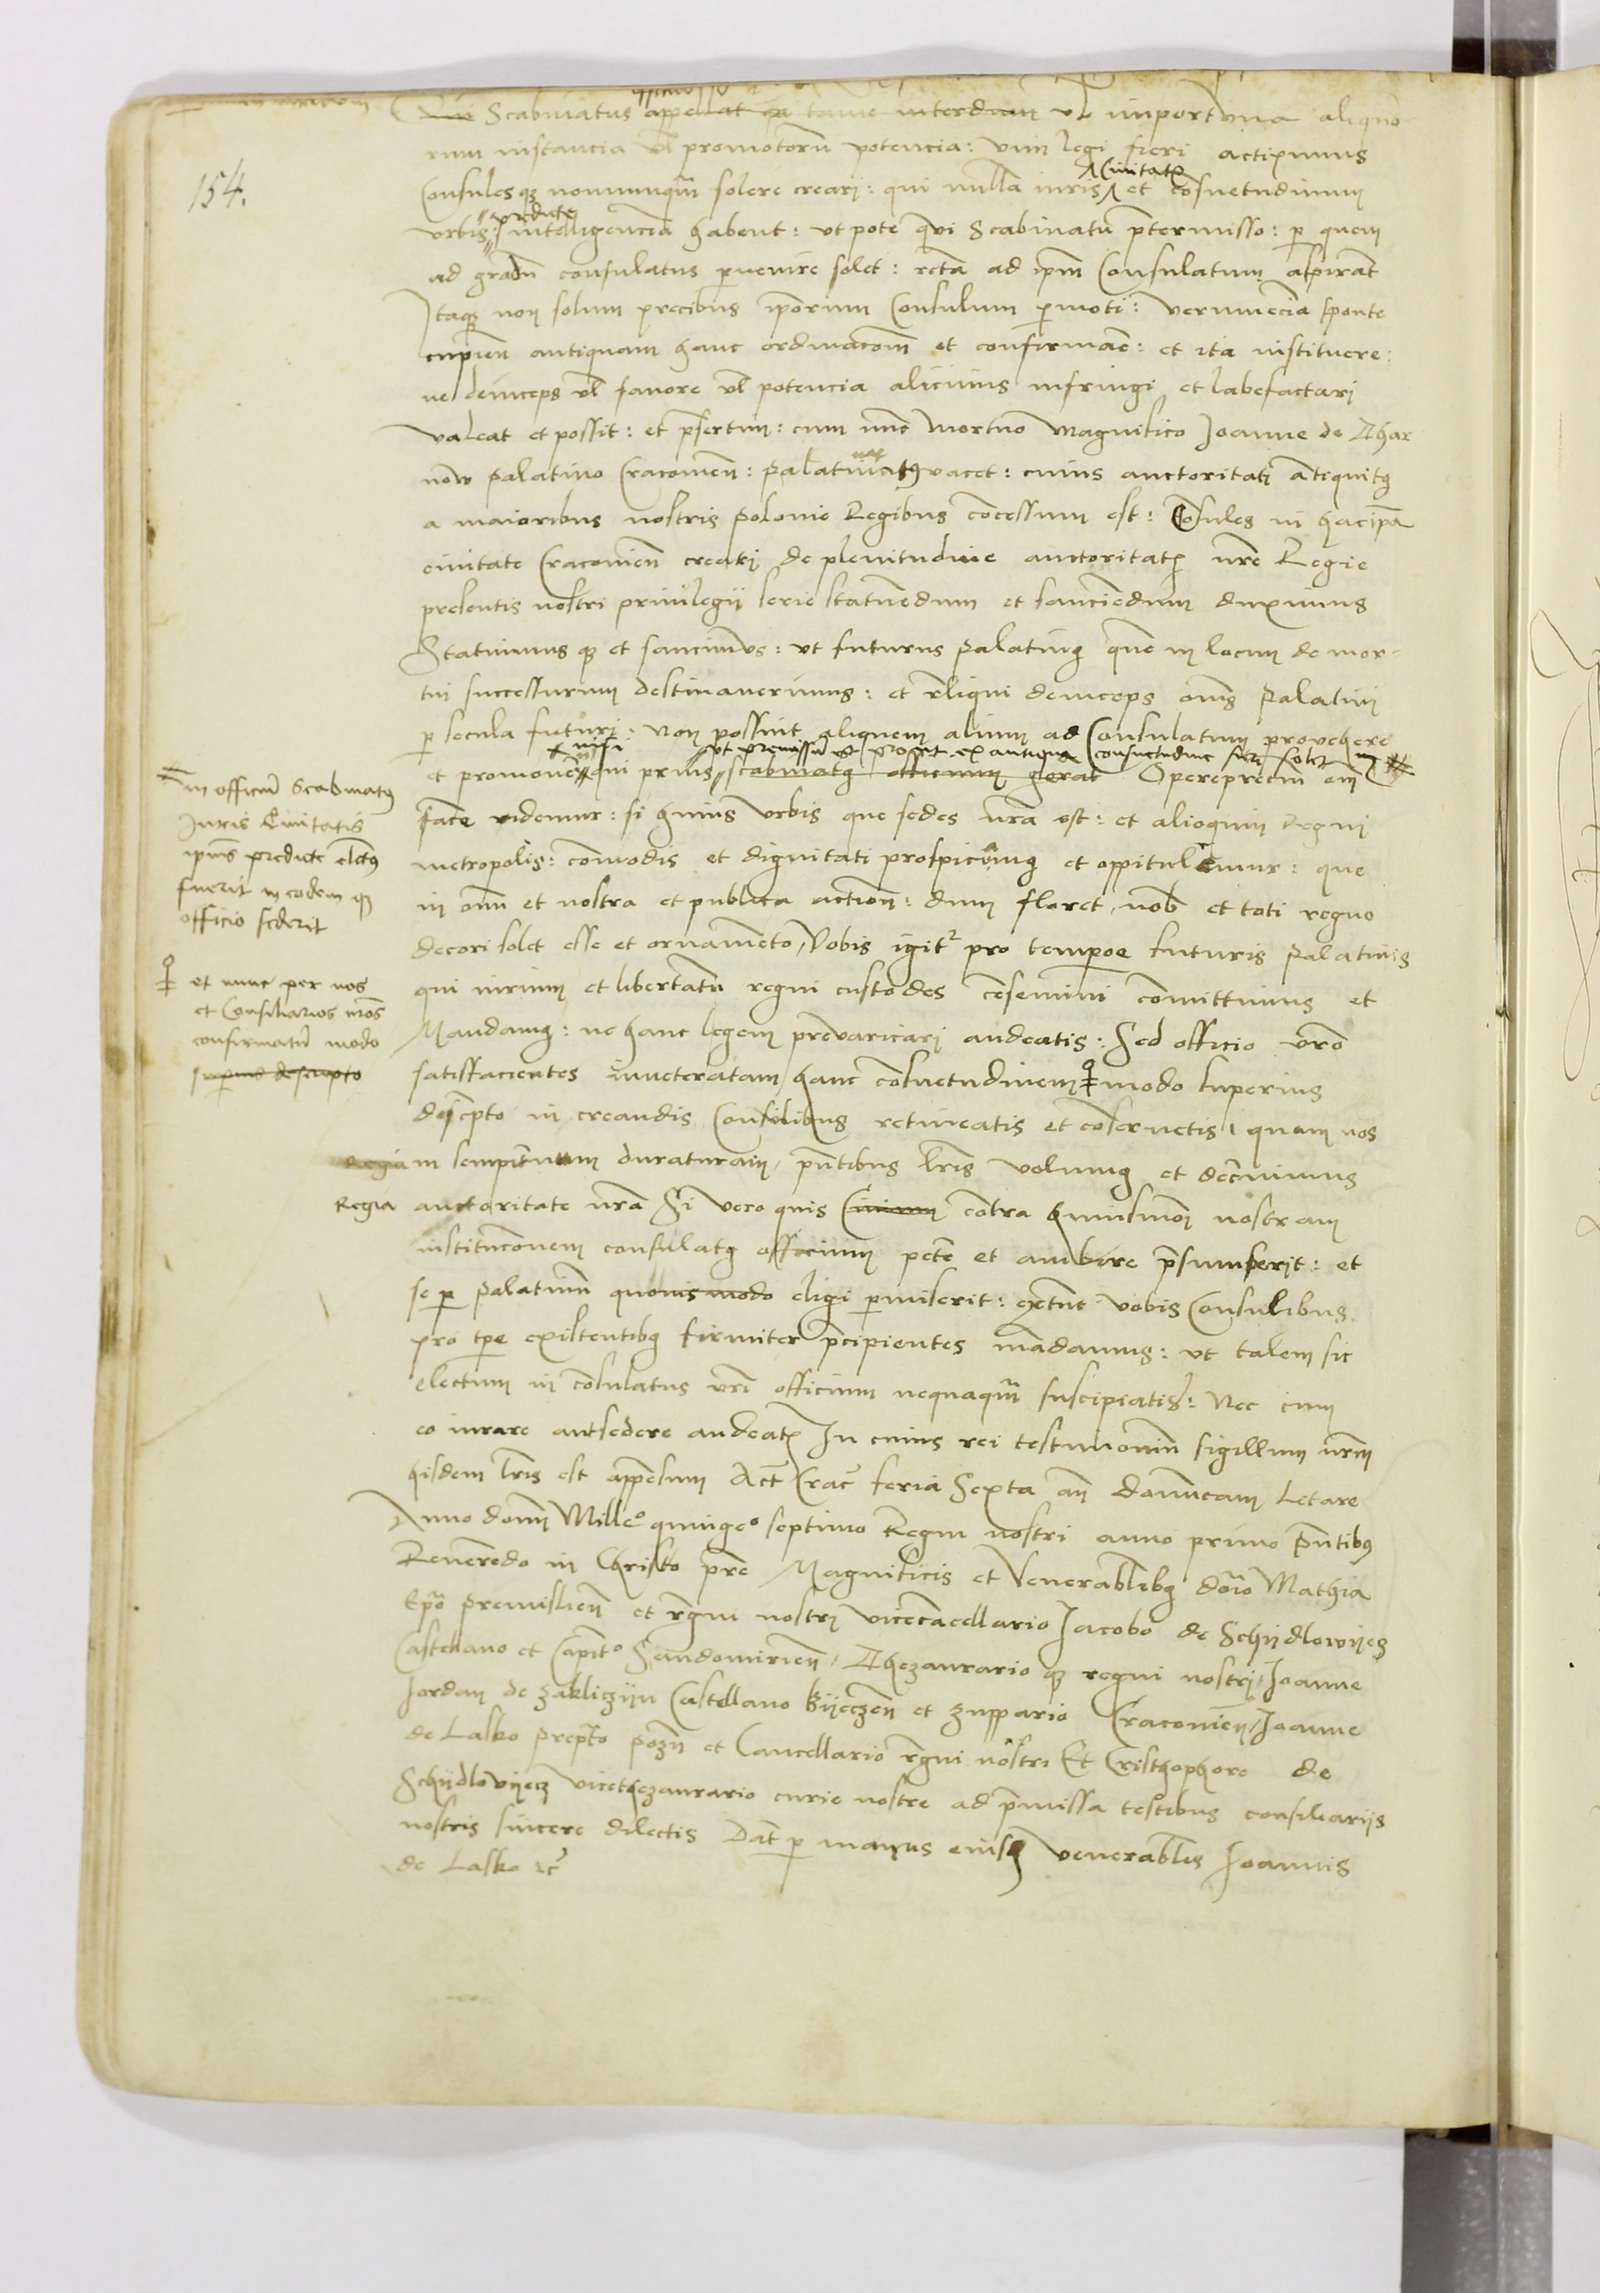 154.
Scabinatus appellat tame interdum vl importuna aliquo
rum instancia vl promotorum potencia: vim legi fieri accipimus
Civitatis
Consulesqz nonnunquam solere creari: qui nulla iuris et cosuetudinum
predicte
urbis intelligencia habent: ut pote qui Scabinatu ptermisso: p quem
ad gradu consulatus pvenire solet: recta ad ipm Consulatum aspirat
Itaqz non solum precibus iporum Consulum pmoti: verumecia sponte
cupien antiquam hanc ordinacom et confirmare: et ita instituere:
ne deinceps vl favore vl potencia alicuius infringi et labefactari
valeat et possit: et psertim: cum nunc mortuo Magnifico Joanne de Thar
now palatino Cracovien: palatinatus vacet: cuius auctoritati atiquitus
a maioribus nostris Polonie Regibus concessum est: Cosules in hac ipa
civitate Cracovien creari de plenitudine auctoritatis nre Regie
presentis nostri privilegii serie statuendum et sanciendum duximus
Statuimusqz et sancimus: ut futurus palatinus quem in locum de mor-
tui successurum destinaverimus: et reliqui deinceps oms Palatini
p secula futuri: non possint aliquem alium ad Consulatum provehere
nisi ut premissum est ex antiqua consuetudine fieri solet in
et promovere qui prius scabinatus officium gerat Operepreciu em
facere videmur: si huius urbis que sedes nra est: et alioquin Regni
metropolis: comodis et dignitati prospiciamus et oppitulemur: que
in omni et nostra et publica action: dum floret nob et toti regno
decori solet esse et ornameto, Vobis igitr pro tempore futuris palatinis
qui iurium et libertatu regni custodes censemini comittimus et
Mandamus: ne hanc legem prevaricari audeatis: Sed officio vro
satisfacientes inveteratam hanc cosuetudinem modo superius
descripto in creandis Consulibus retineatis et coservetis, quam nos
Regia m sempiternam duraturam, pntibus lris volumus et decernimus
Regia auctoritate nra Si vero quis Civium contra huiusmodi nostram
institucionem consulatus officium petere et ambire presumpserit: et
se p palatinum quovismodo eligi pmiserit: extunc vobis Consulibus
pro tpe existentibus firmiter pcipientes madamus: ut talem sic
electum in cosulatus vri officium nequaquam suscipiatis: Nec cum
eo iurare aut sedere audeatis In cuius rei testimonium sigillum nrm
hisdem lris est appesum Act Crac feria Sexta an dominicam Letare
Anno domi Milleo quingeo septimo Regni nostri anno primo Pntibus
Reverendo in Christo pre Magnificis et Venerabilibus domino Mathia
Epo Premislien et regni nostri vicecancellario Jacobo de Schijdlowijecz
Castellano et Capito Sandomirien, Thezaurarioqz regni nostri, Joanne
Jordan de Zakliczijn Castellano Bijeczen et Zuppario Cracovien, Joanne
de Lasko prepto Pozn et Cancellario regni nostri Et Cristhophoro de
Schijdlovijecz vicethezaurario curie nostre ad premissa testibus consiliarijs
nostris sincere dilectis Dat p manus eiusd venerabilis Joannis
de Lasko etc
in officium Scabinatus
Juris Civitatis
ipius predicte electus
fuerit in eodemqz
officio sederit
et nunc per nos
et Consiliarios nros
confirmatu modo
superius descripto